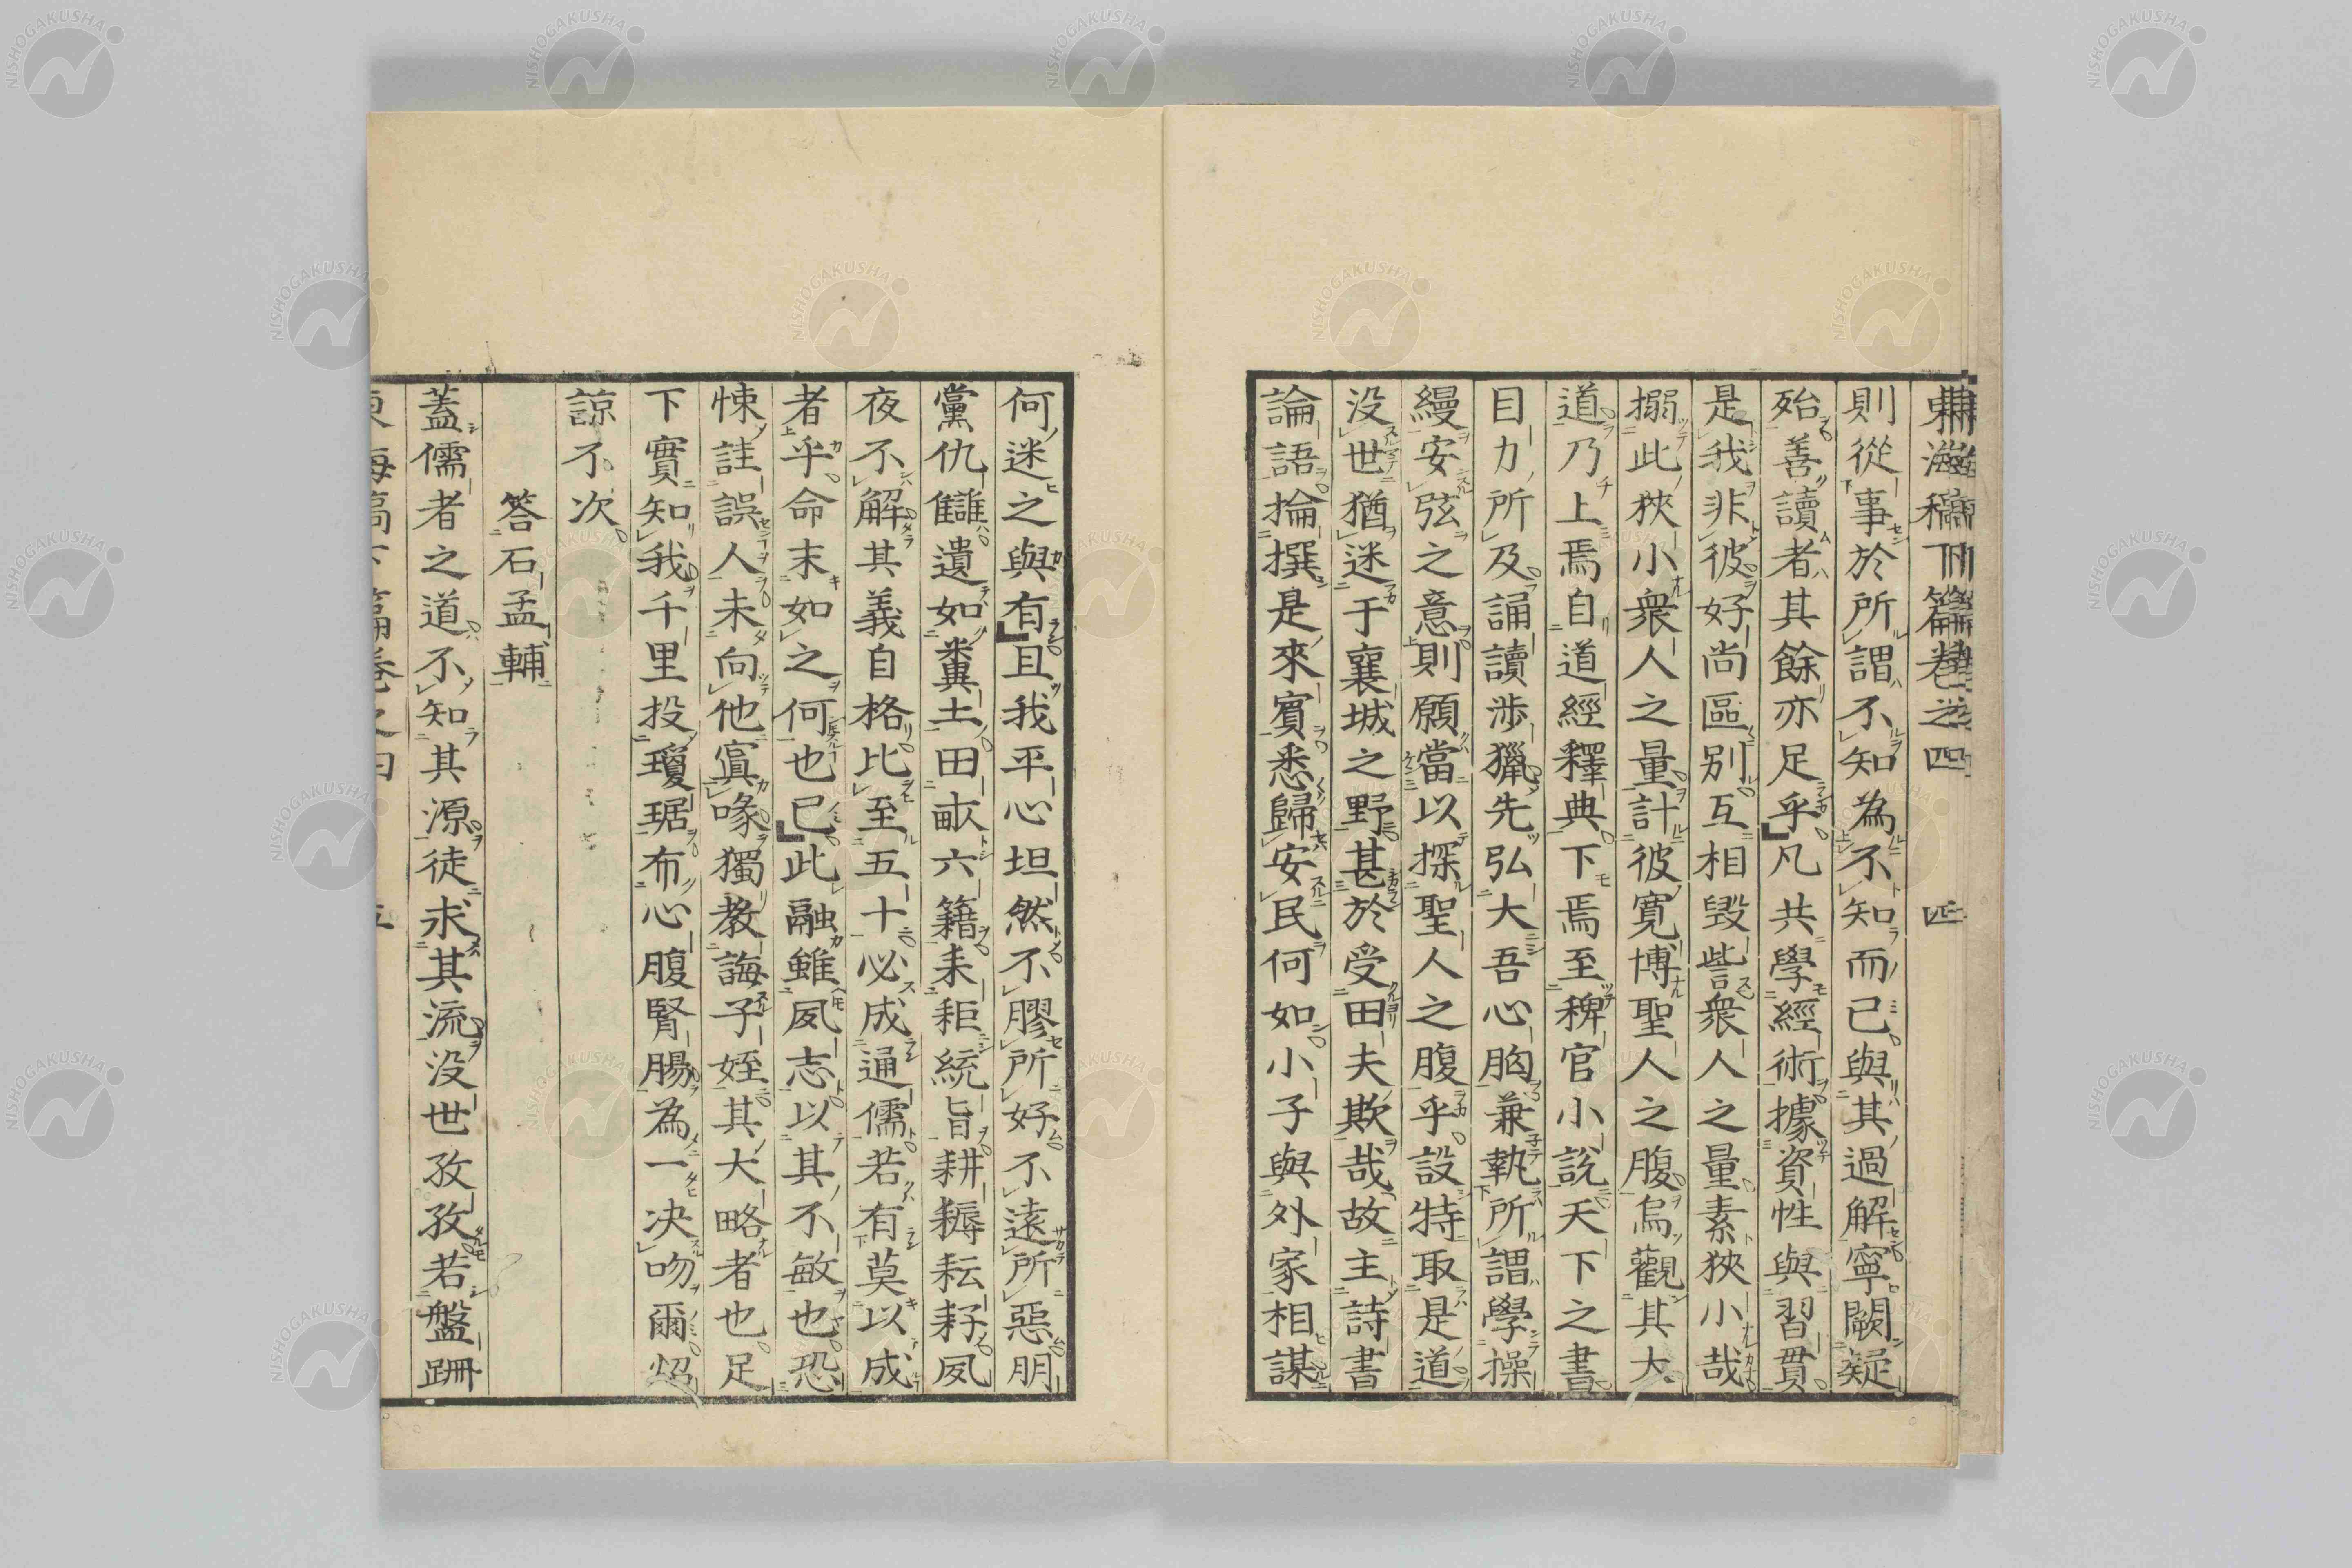 東海稿下篇卷之四 四
則從事於所謂不知為不知而已與其過解寧闕疑
殆善讀者其餘亦足乎凡共學經術據資性與習貫
是我非彼好尚區別互相毀訾衆人之量素狹小哉
搦此狹小衆人之量計彼寛博聖人之腹烏觀其大
道乃上焉自道經釋典下焉至稗官小說天下之書
目力所及誦讀渉獵先弘大吾心胸兼執所謂學操
縵安弦之意則願當以探聖人之腹乎設特取是道
没世猶迷于襄城之野甚於受田夫欺哉故主詩書
論語掄撰是來賓悉歸安民何如小子與外家相謀
何迷之與有且我平心坦然不膠所好不遠所惡朋
黨仇讎遺如糞土田畝六籍耒耟統旨耕耨耘耔夙
夜不解其義自格比至五十必成通儒若有莫以成
者乎命末如之何也已此融雖夙志以其不敏也恐
悚註誤人未向他寘喙獨教誨子姪其大略者也足
下實知我千里投瓊琚布心腹腎腸為一決吻爾炤
諒不次
答石孟輔
蓋儒者之道不知其源徒求其流没世孜孜若盤跚
東海稿下篇卷之四 五
NISHOGAKUSHA